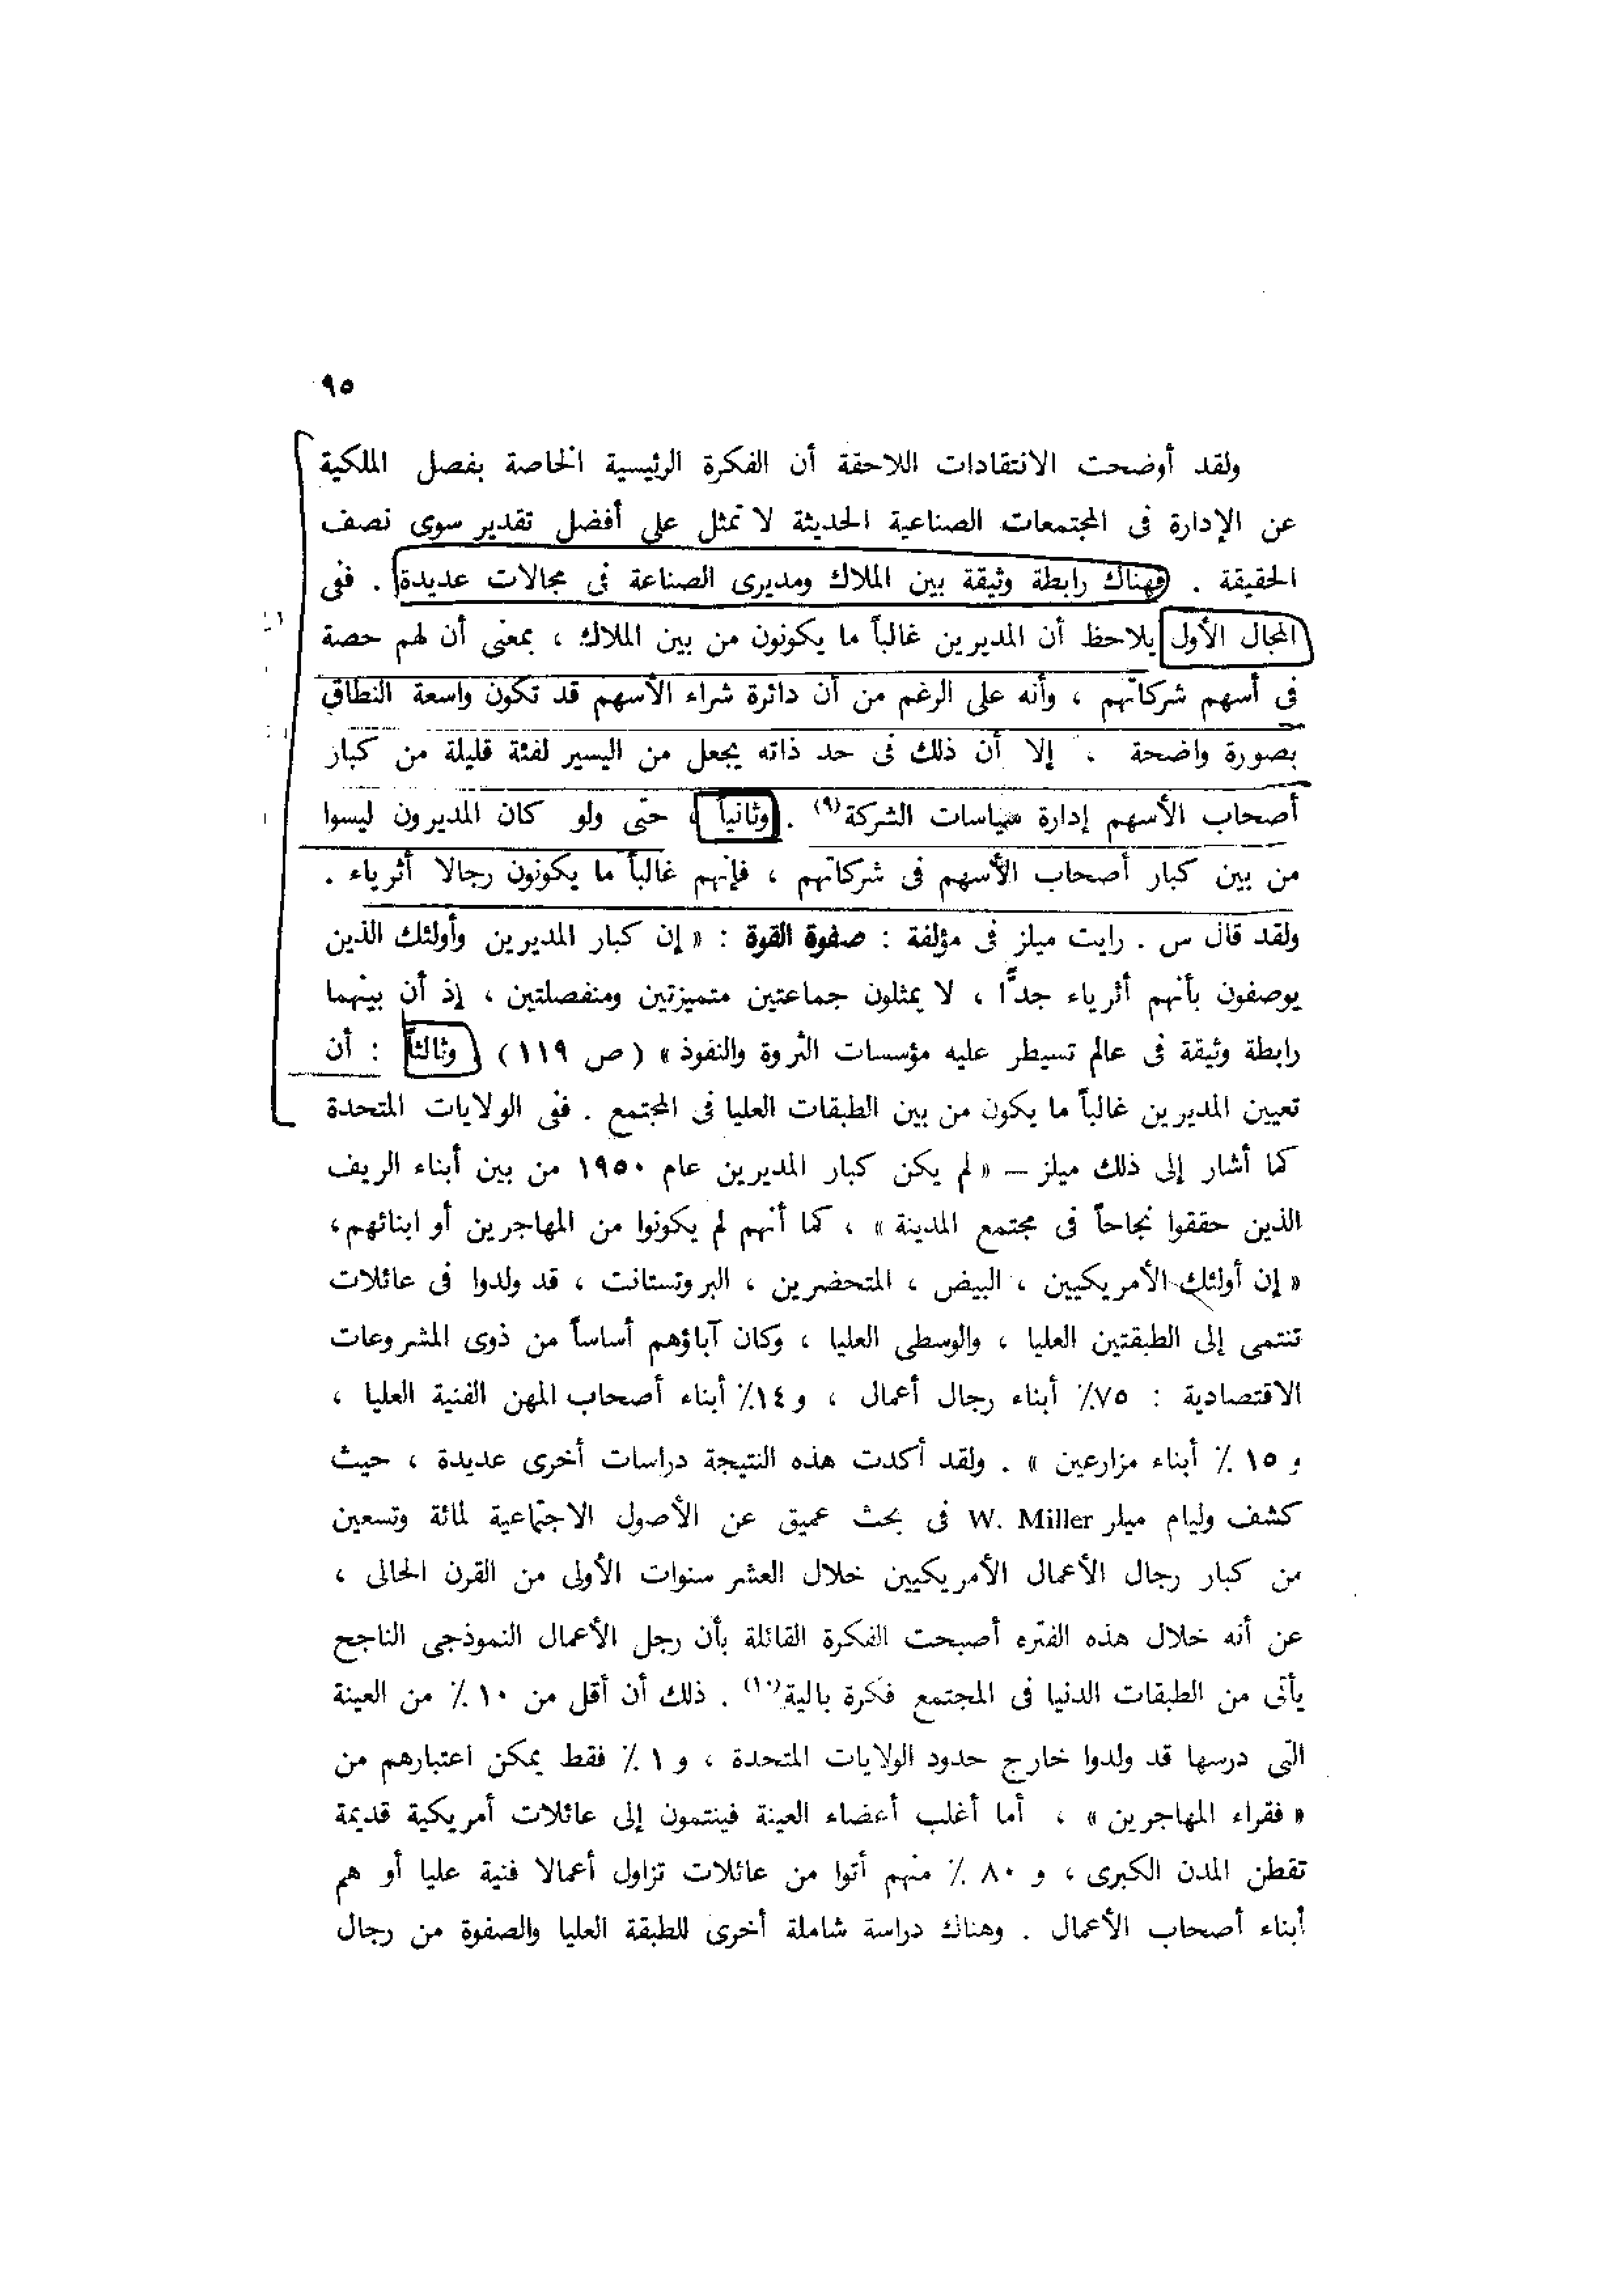 ٩٥
ولقد أوضحت الانتقادات اللاحقة أن الفكرة الرئيسية الخاصة بفصل الملكية
عن الإدارة فى المجتمعات الصناعية الحديثة لا تمثل على أفضل تقدير سوى نصف
الحقيقة . فهناك رابطة وثيقة بين الملاك ومديرى الصناعة فى مجالات عديدة . ففى
المجال الأول يلاحظ أن المديرين غالباً ما يكونون من بين الملاك ، بمعنى أن لهم حصة
فى أسهم شركاتهم ، وأنه على الرغم من أن دائرة شراء الأسهم قد تكون واسعة النطاق
بصورة واضحة ، إلا أن ذلك فى حد ذاته يجعل من اليسير لفئة قليلة من كبار
أصحاب الأسهم إدارة سياسات الشركة(٩) . وثانياً ، حتى ولو كان المديرون ليسوا
من بين كبار أصحاب الأسهم فى شركاتهم ، فإنهم غالباً ما يكونون رجالا أثرياء .
ولقد قال س . رايت ميلز فى مؤلفة : صفوة القوة : « إن كبار المديرين وأولئك الذين
يوصفون بأنهم أثرياء جدًّا ، لا يمثلون جماعتين متميزتين ومنفصلتين ، إذ أن بينهما
رابطة وثيقة فى عالم تسيطر عليه مؤسسات الثروة والنفوذ » ( ص ١١٩ ) وثالثاً : أن
تعيين المديرين غالباً ما يكون من بين الطبقات العليا فى المجتمع . ففى الولايات المتحدة
كما أشار إلى ذلك ميلز – « لم يكن كبار المديرين عام ١٩٥٠ من بين أبناء الريف
الذين حققوا نجاحاً فى مجتمع المدينة » ، كما أنهم لم يكونوا من المهاجرين أو ابنائهم ،
« إن أولئك الأمريكيين ، البيض ، المتحضرين ، البروتستانت ، قد ولدوا فى عائلات
تنتمى إلى الطبقتين العليا ، والوسطى العليا ، وكان آباؤهم أساساً من ذوى المشروعات
الاقتصادية : ٧٥٪ أبناء رجال أعمال ، و ١٤٪ أبناء أصحاب المهن الفنية العليا ،
و ١٥ ٪ أبناء مزارعين » . ولقد أكدت هذه النتيجة دراسات أخرى عديدة ، حيث
كشف وليام ميلر W. Miller فى بحث عميق عن الأصول الاجتماعية لمائة وتسعين
من كبار رجال الأعمال الأمريكيين خلال العشر سنوات الأولى من القرن الحالى ،
عن أنه خلال هذه الفتره أصبحت الفكرة القائلة بأن رجل الأعمال النموذجى الناجح
يأتى من الطبقات الدنيا فى المجتمع فكرة بالية(١٠) . ذلك أن أقل من ١٠ ٪ من العينة
التى درسها قد ولدوا خارج حدود الولايات المتحدة ، و ١ ٪ فقط يمكن اعتبارهم من
« فقراء المهاجرين » ، أما أغلب أعضاء العينة فينتمون إلى عائلات أمريكية قديمة
تقطن المدن الكبرى ، و ٨٠ ٪ منهم أتوا من عائلات تزاول أعمالا فنية عليا أو هم
أبناء أصحاب الأعمال . وهناك دراسة شاملة أخرى للطبقة العليا والصفوة من رجال